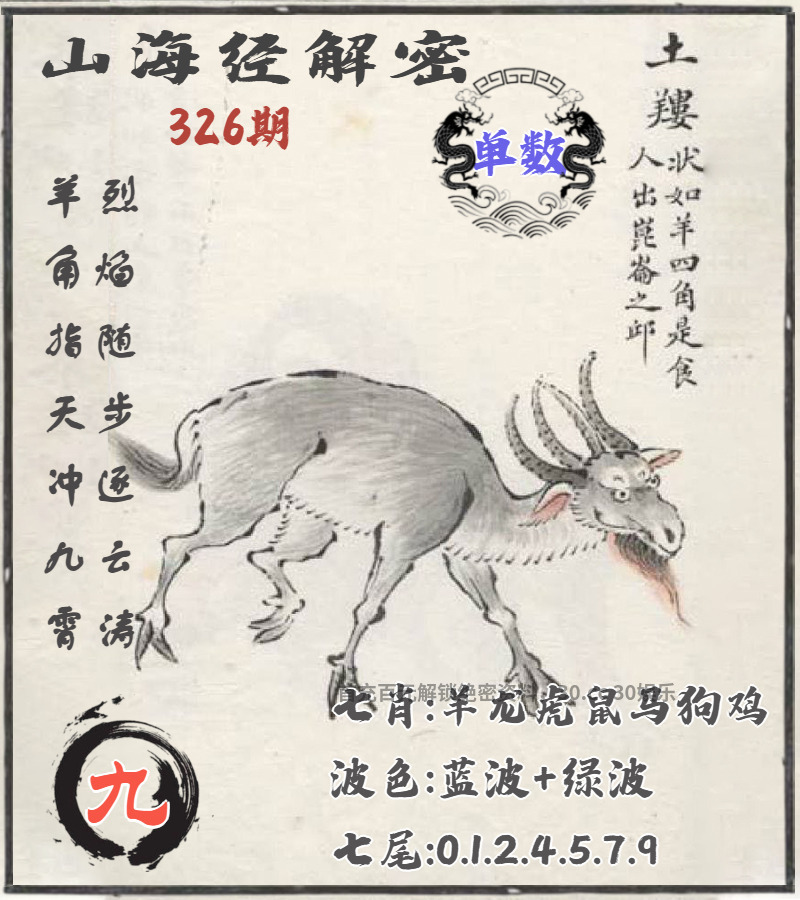 山海经解密
326期
单数
土
羬
状如羊四角是食
人出崑崙之邱
烈焰随步逐云涛
羊角指天冲九霄
七肖:羊龙虎鼠马狗鸡
波色:蓝波+绿波
七尾:0.1.2.4.5.7.9
九